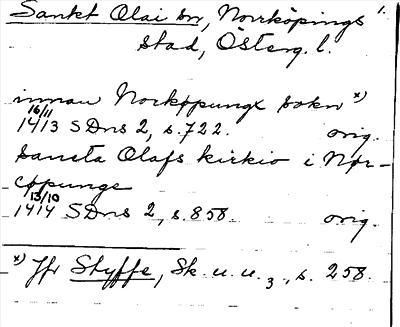 Sankt Olai sn, Norrköpings 1.
stad, Österg. l.
innan Norkøpungx sokn x)
16/11
1413 SDns 2, s. 722. orig.
Sancta Olafs kirkio i Nør-
cøpunge
13/10
1414 SDns 2, s. 858. orig.
x) Jfr Styffe, Sk. u. u. 3, s. 258.